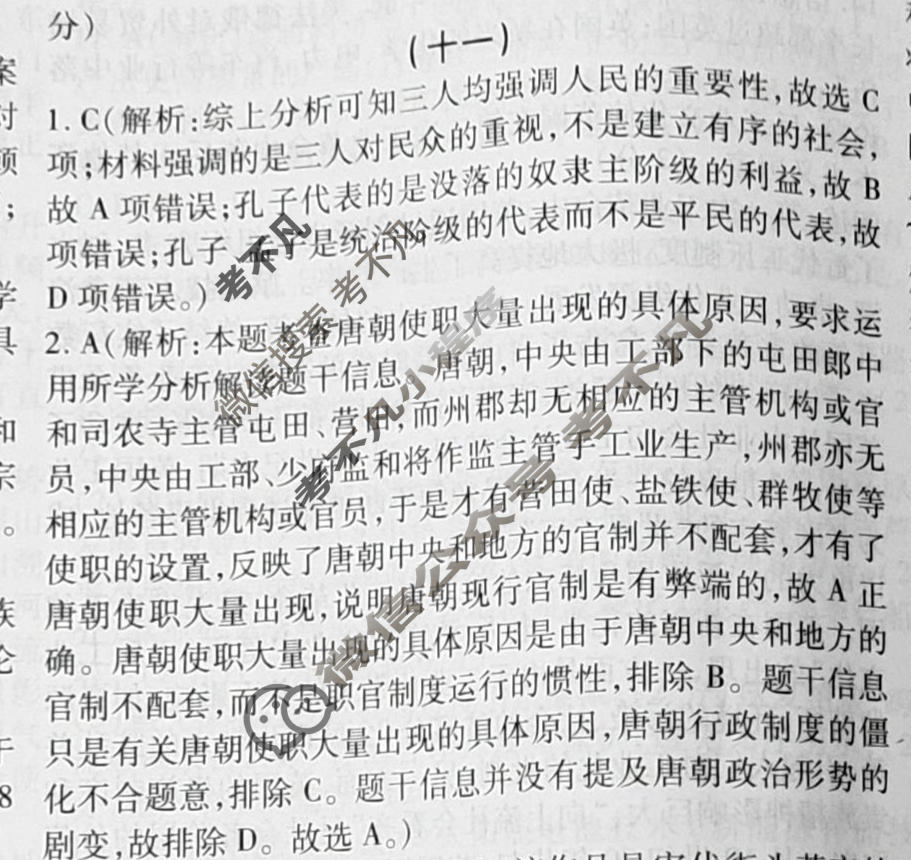 分)
(十一)
1. C(解析:综上分析可知三人均强调人民的重要性,故选 C
项;材料强调的是三人对民众的重视,不是建立有序的社会,
故 A 项错误;孔子代表的是没落的奴隶主阶级的利益,故 B
项错误;孔子、孟子是统治阶级的代表而不是平民的代表,故
D 项错误。)
2. A(解析:本题考查唐朝使职大量出现的具体原因,要求运
用所学分析解读题干信息。唐朝,中央由工部下的屯田郎中
和司农寺主管屯田、营田,而州郡却无相应的主管机构或官
员,中央由工部、少府监和将作监主管手工业生产,州郡亦无
相应的主管机构或官员,于是才有营田使、盐铁使、群牧使等
使职的设置,反映了唐朝中央和地方的官制并不配套,才有了
唐朝使职大量出现,说明唐朝现行官制是有弊端的,故 A 正
确。唐朝使职大量出现的具体原因是由于唐朝中央和地方的
官制不配套,而不是职官制度运行的惯性,排除 B。题干信息
只是有关唐朝使职大量出现的具体原因,唐朝行政制度的僵
化不合题意,排除 C。题干信息并没有提及唐朝政治形势的
剧变,故排除 D。故选 A。)
考不凡
微信搜索 考不凡
考不凡小程序
微信公众号 考不凡
案
对
顾
;
学
具
和
宗
。
族
论
于
8